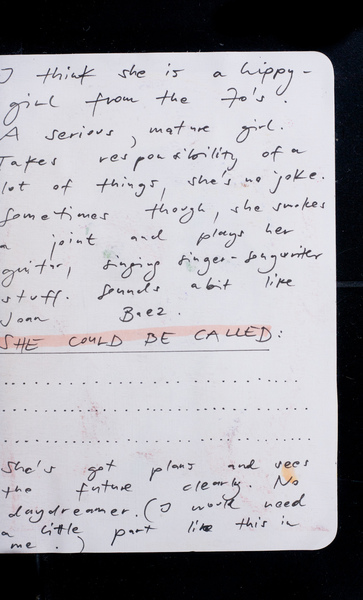 I think she is a hippy-
girl from the 70's.
A serious, mature girl.
Takes responsibility of a
lot of things, she's no joke.
Sometimes though, she smokes
a joint and plays her
guitar, singing singer-songwriter
stuff. Sounds abit like
Joan Baez.
SHE COULD BE CALLED:
She's got plans and sees
the future clearly. No
daydreamer. (I would need
a little part like this in
me.)